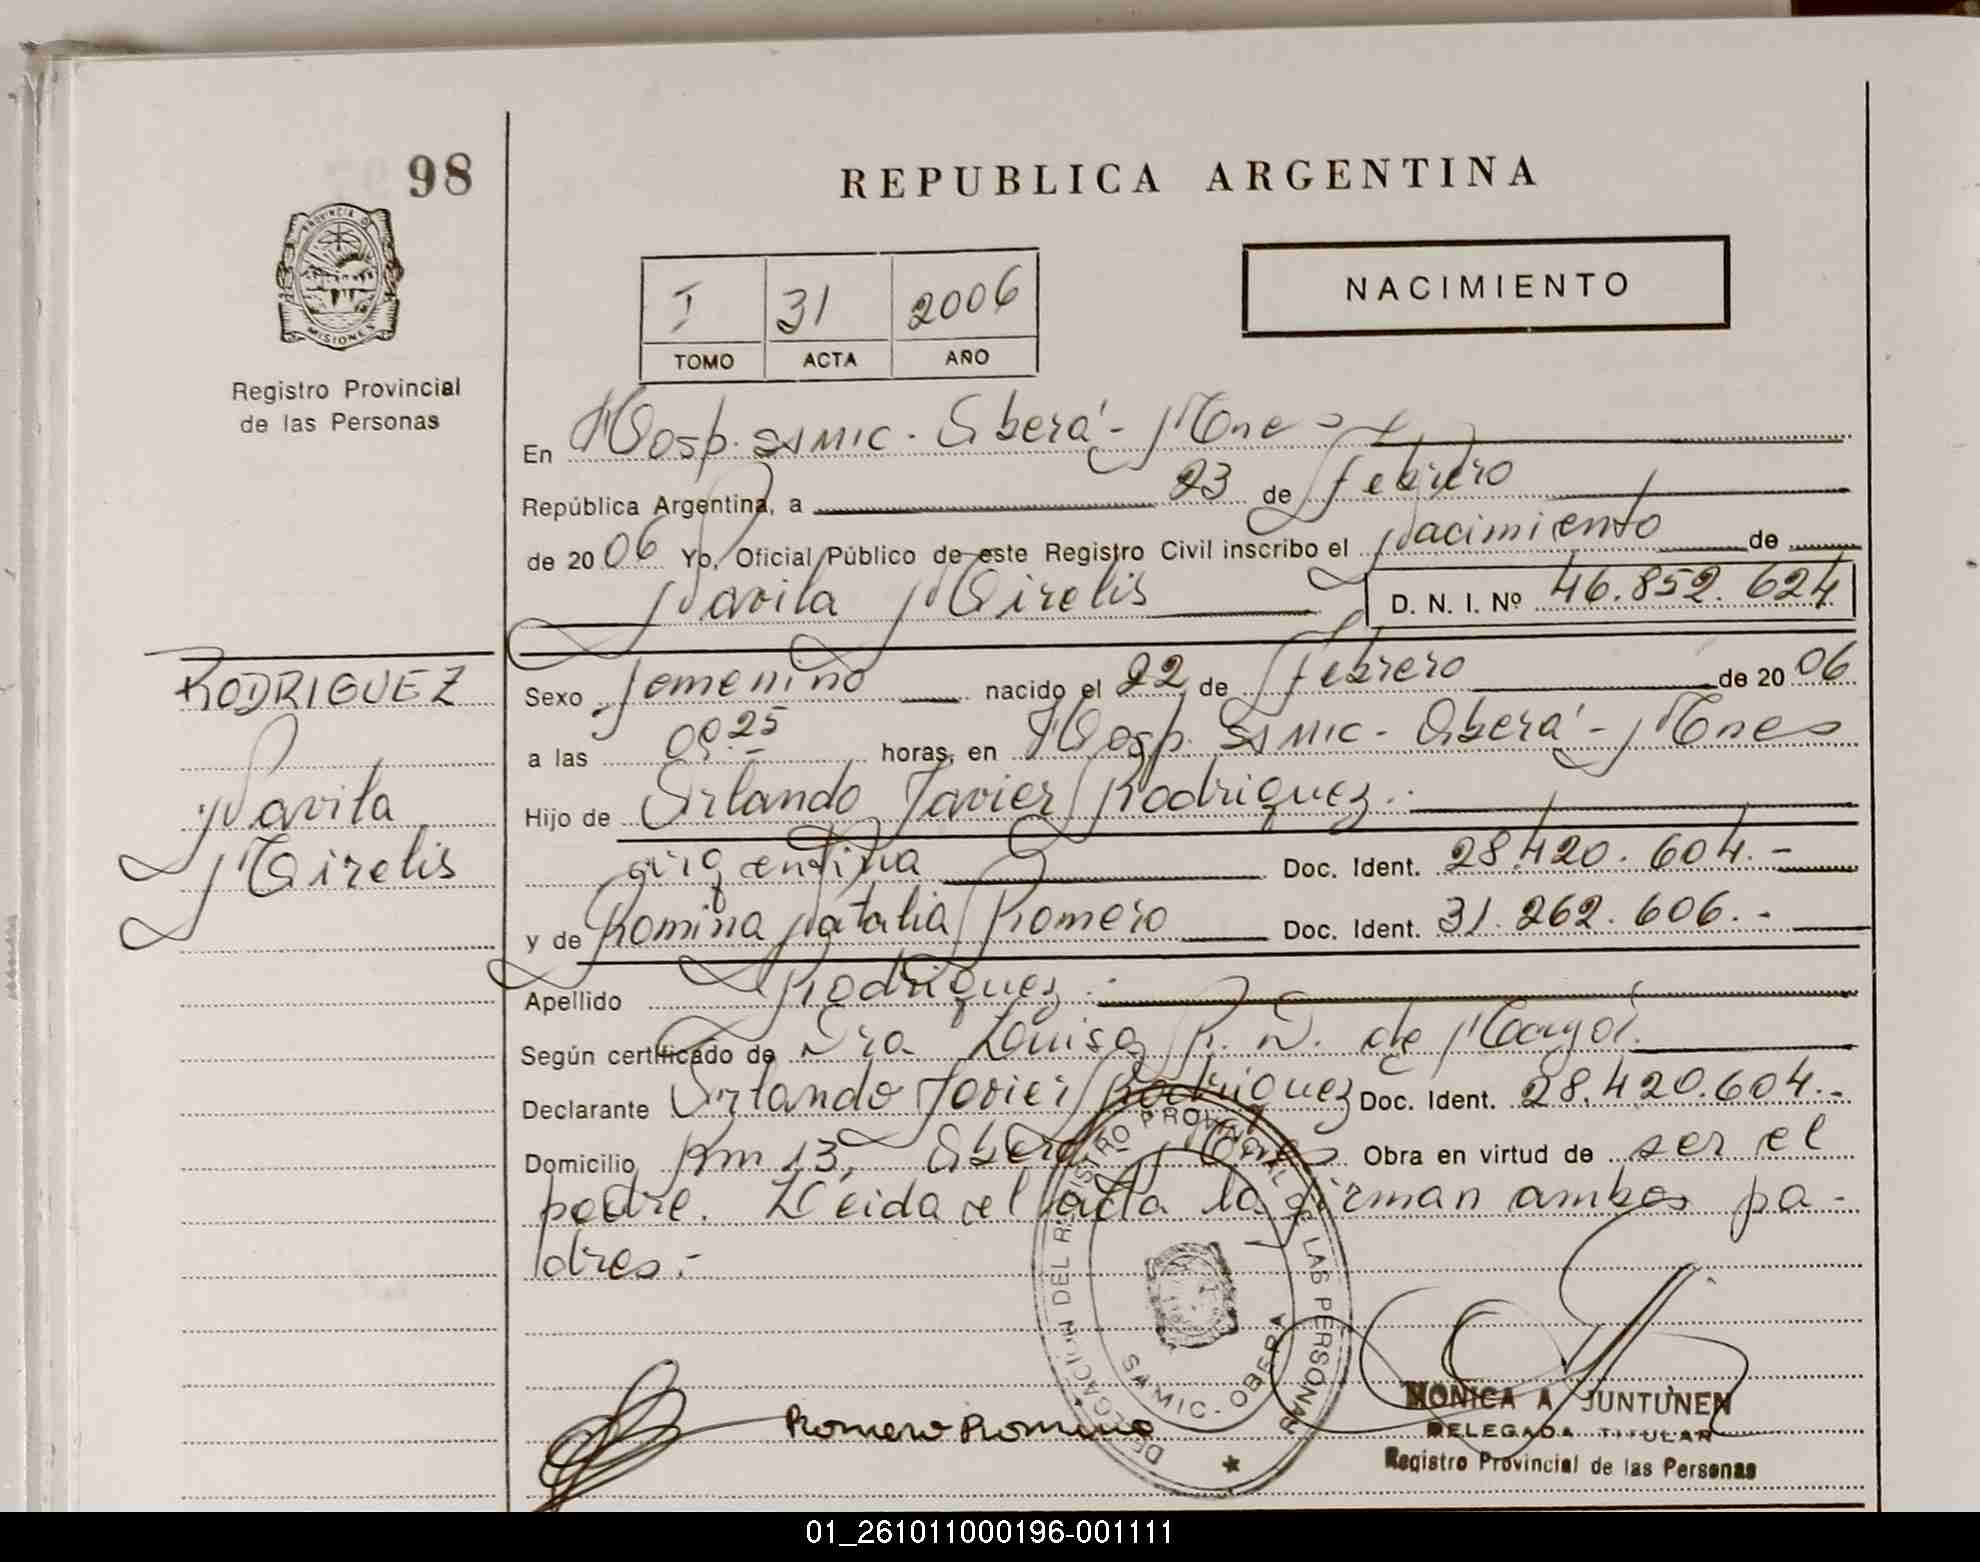 98
REPUBLICA ARGENTINA
PROVINCIA DE
MISIONES
Registro Provincial
de las Personas
I 31 2006
TOMO ACTA AÑO
NACIMIENTO
En Hosp. SAMIC - Oberá - Mnes
República Argentina, a 23 de febrero
de 2006 Yo, Oficial Público de este Registro Civil inscribo el Nacimiento de
Navila Mirelis D. N. I. Nº 46.852.624
RODRIGUEZ
Navila
Mirelis
Sexo femenino nacido el 22 de febrero de 2006
a las 09.25 horas, en Hosp. SAMIC - Oberá - Mnes
Hijo de Orlando Javier Rodriguez.
argentina Doc. Ident. 28.420.604.-
y de Romina Natalia Romero Doc. Ident. 31.262.606.-
Apellido Rodriguez.
Según certificado de Dra. Louisa R. N. de
Declarante Orlando Javier Rodriguez Doc. Ident. 28.420.604.-
Domicilio Km 13, Oberá, Mnes Obra en virtud de ser el
padre. Leida el acta la firman ambos pa-
dres.-
DELEGACION DEL REGISTRO PROVINCIAL DE LAS PERSONAS
SAMIC - OBERA
Romero Romina
MONICA A JUNTUNEN
DELEGADA TITULAR
Registro Provincial de las Personas
01_261011000196-001111